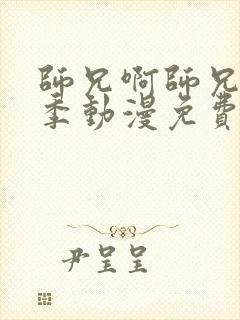 師兄啊師兄
季動漫免費
尹呈呈